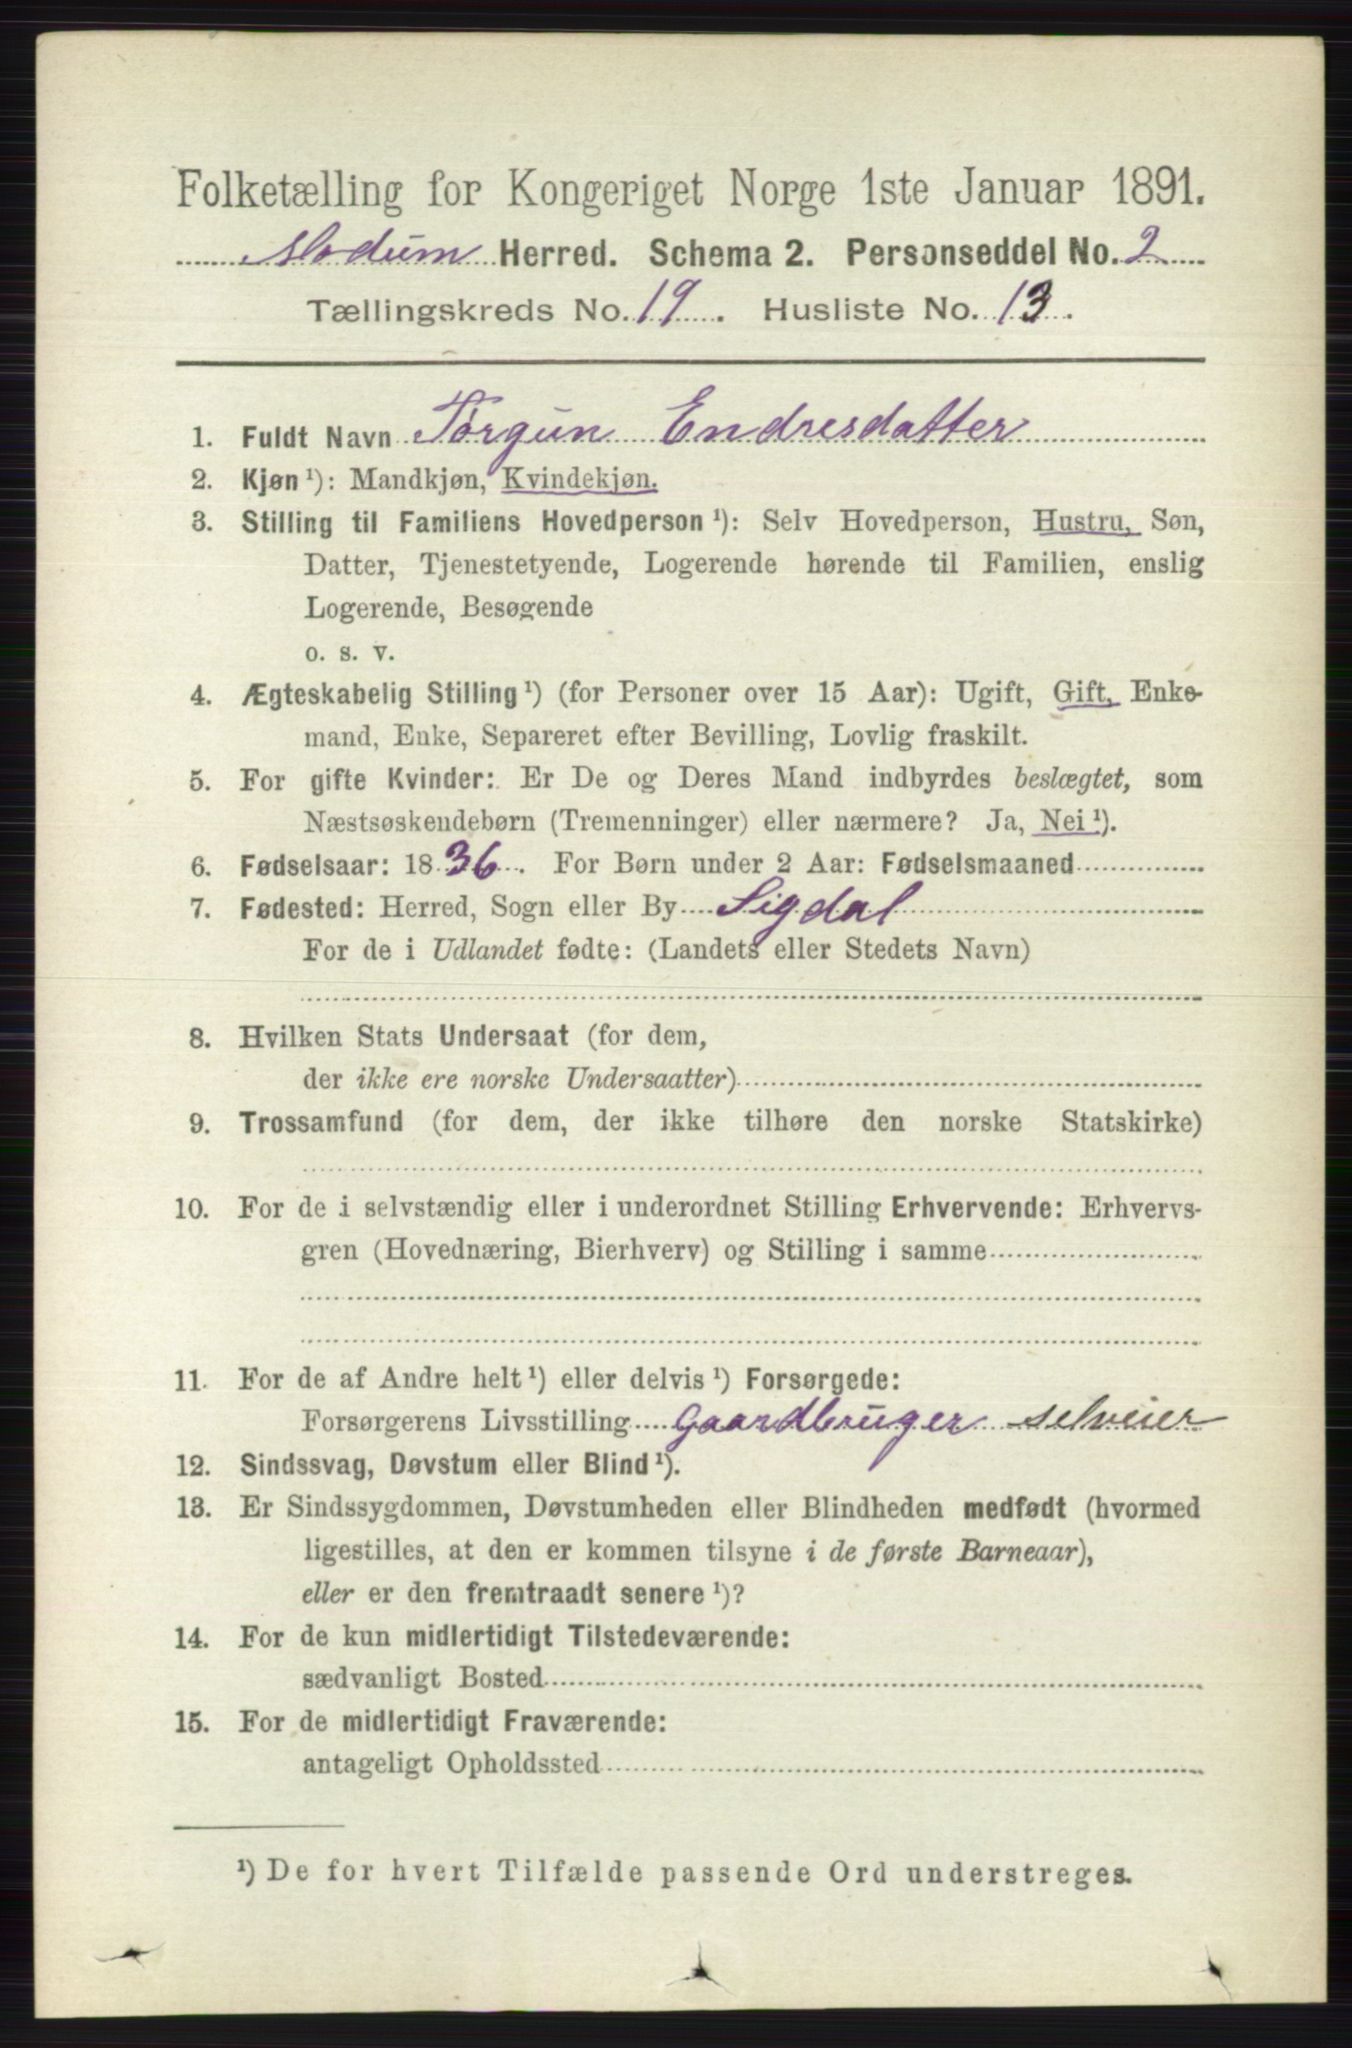 Folketælling for Kongeriget Norge 1ste Januar 1891.
Modum Herred. Schema 2. Personseddel No. 2
Tællingskreds No. 19. Husliste No. 13.
1. Fuldt Navn Tørgun Endresdatter
2. Kjøn ¹): Mandkjøn, Kvindekjøn.
3. Stilling til Familiens Hovedperson ¹): Selv Hovedperson, Hustru, Søn,
Datter, Tjenestetyende, Logerende hørende til Familien, enslig
Logerende, Besøgende
o. s. v.
4. Ægteskabelig Stilling ¹) (for Personer over 15 Aar): Ugift, Gift, Enke-
mand, Enke, Separeret efter Bevilling, Lovlig fraskilt.
5. For gifte Kvinder: Er De og Deres Mand indbyrdes beslægtet, som
Næstsøskendebørn (Tremenninger) eller nærmere? Ja, Nei ¹).
6. Fødselsaar: 1836. For Børn under 2 Aar: Fødselsmaaned
7. Fødested: Herred, Sogn eller By Sigdal
For de i Udlandet fødte: (Landets eller Stedets Navn)
8. Hvilken Stats Undersaat (for dem,
der ikke ere norske Undersaatter)
9. Trossamfund (for dem, der ikke tilhøre den norske Statskirke)
10. For de i selvstændig eller i underordnet Stilling Erhvervende: Erhvervs-
gren (Hovednæring, Bierhverv) og Stilling i samme
11. For de af Andre helt ¹) eller delvis ¹) Forsørgede:
Forsørgerens Livsstilling Gaardbruger selveier
12. Sindssvag, Døvstum eller Blind ¹).
13. Er Sindssygdommen, Døvstumheden eller Blindheden medfødt (hvormed
ligestilles, at den er kommen tilsyne i de første Barneaar),
eller er den fremtraadt senere ¹)?
14. For de kun midlertidigt Tilstedeværende:
sædvanligt Bosted
15. For de midlertidigt Fraværende:
antageligt Opholdssted
¹) De for hvert Tilfælde passende Ord understreges.